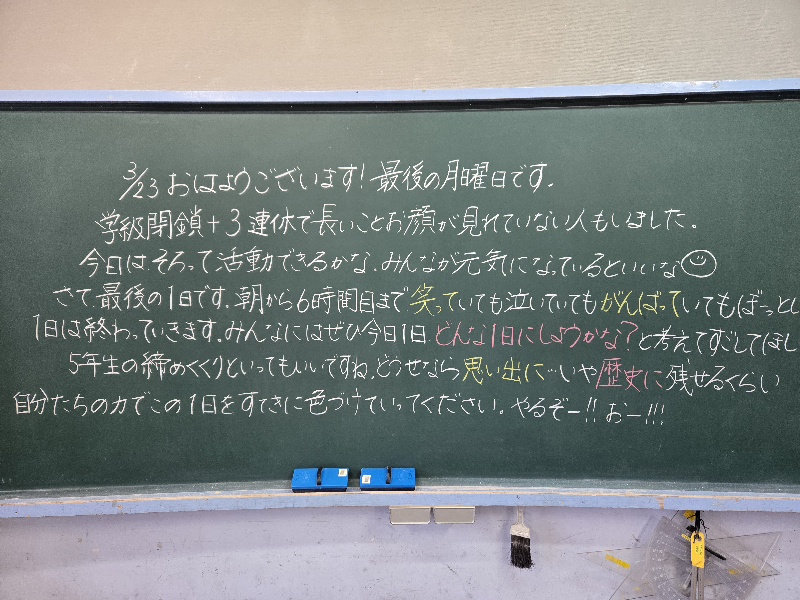 3/23 おはようございます! 最後の月曜日です。
学級閉鎖+3連休で長いことお顔が見れていない人もいました。
今日は、そろって活動できるかな、みんなが元気になっているといいな
さて、最後の1日です。朝から6時間目まで、笑っていても泣いていてもがんばっていてもぼーっとし
1日は終わっていきます。みんなにはぜひ今日1日、どんな1日にしようかな?と考えてすごしてほし
5年生の締めくくりといってもいいですね。どうせなら思い出に…いや歴史に残せるくらい
自分たちの力でこの1日をすてきに色づけていってください。やるぞー!! おー!!!